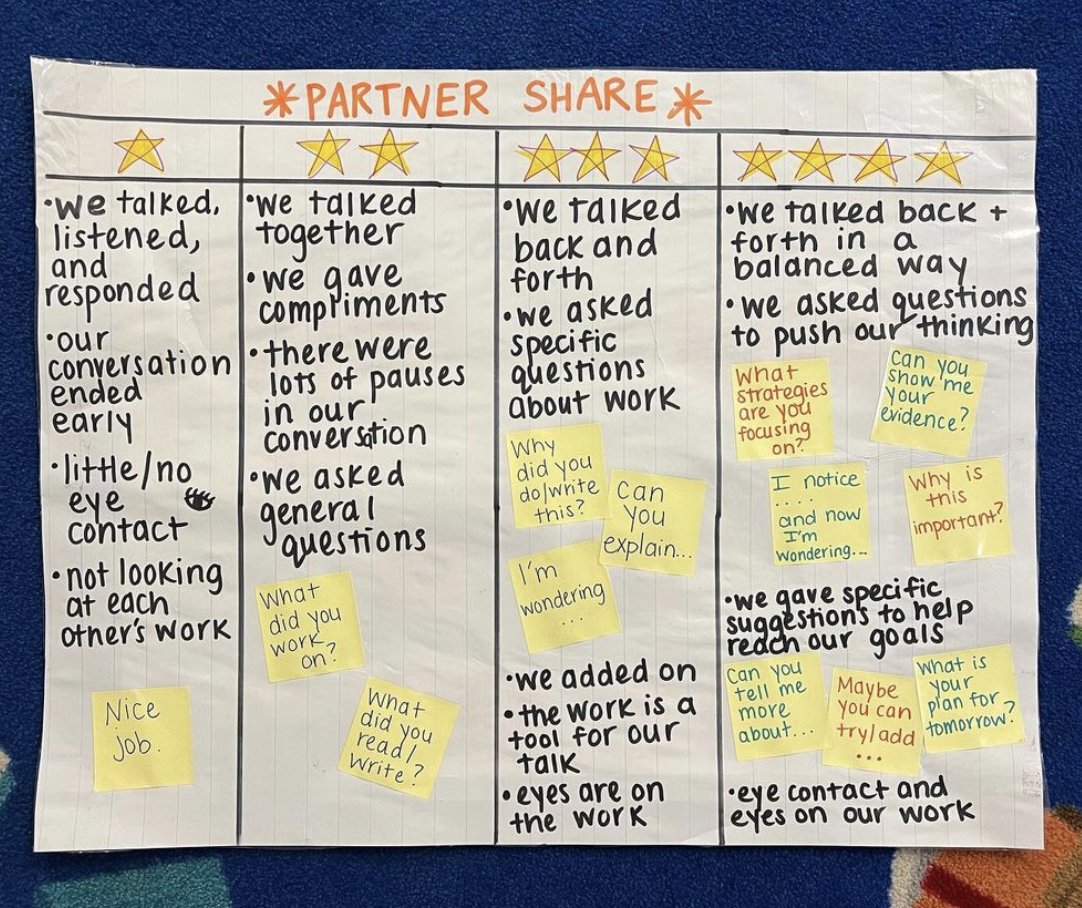 *PARTNER SHARE*
•we talked,
listened,
and
responded
•our
conversation
ended
early
•little/no
eye
contact
•not looking
at each
other's work
Nice
job.
•we talked
together
•we gave
compliments
•there were
lots of pauses
in our
conversation
•we asked
general
questions
What
did you
work
on?
What
did you
read/
write?
•we talked
back and
forth
•we asked
specific
questions
about work
Why
did you
do/write
this?
can
you
explain...
I'm
wondering
...
•we added on
•the work is a
tool for our
talk
•eyes are on
the work
•we talked back +
forth in a
balanced way
•we asked questions
to push our thinking
What
strategies
are you
focusing
on?
can you
show me
your
evidence?
I notice
....
and now
I'm
wondering...
Why is
this
important?
•we gave specific
suggestions to help
reach our goals
Can you
tell me
more
about...
Maybe
you can
try/add
...
What is
your
plan for
tomorrow?
•eye contact and
eyes on our work